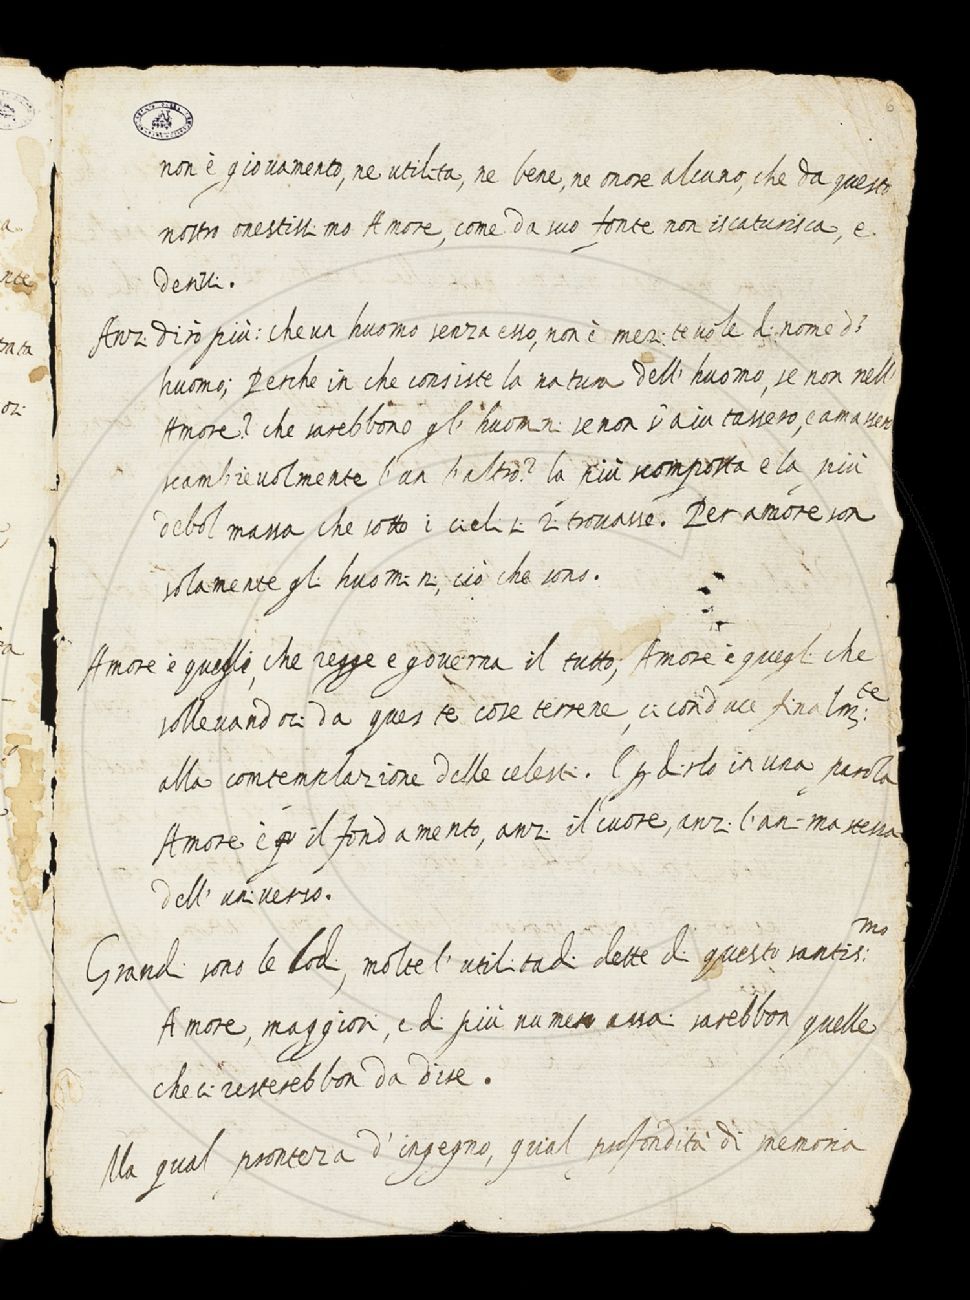 6
non è giovamento, ne utilità, ne bene, ne onore alcuno, che da questo
nostro onestissimo Amore, come da suo fonte non iscaturisca, e
derivi.
Anzi dirò più: che un huomo senza esso, non è meritevole di nome d'
huomo; Perche in che consiste la natura dell' huomo, se non nell'
Amore? che sarebbono gl' huomini se non s' aiutassero, e amasser
scambievolmente l' un l' altro? la più scomposta e la più
debol massa che sotto i cieli si trovasse. Per amore son
solamente gli huomini, ciò che sono.
Amore è quegli, che regge e governa il tutto; Amore è quegli che
sollevandoci da queste cose terrene, ci conduce finalm:te
alla contemplazione delle celesti. E p dirlo in una parola
Amore è il fondamento, anzi il cuore, anzi l' anima stessa
dell' universo.
Grandi sono le lodi, molte l' utilitadi dette di questo santis:mo
Amore, maggiori, e di più numero assai sarebbon quelle
che ci resterebbon da dire.
Ma qual prontezza d' ingegno, qual profondità di memoria